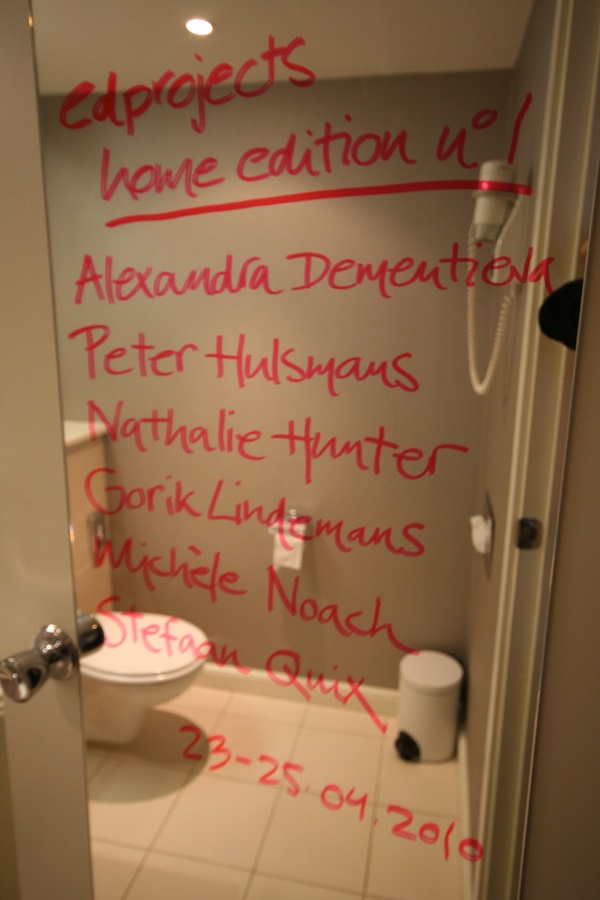 edprojects
home edition n° 1
Alexandra Dementieva
Peter Hulsmans
Nathalie Hunter
Gorik Lindemans
Michèle Noach
Stefaan Quix
23-25.04.2010